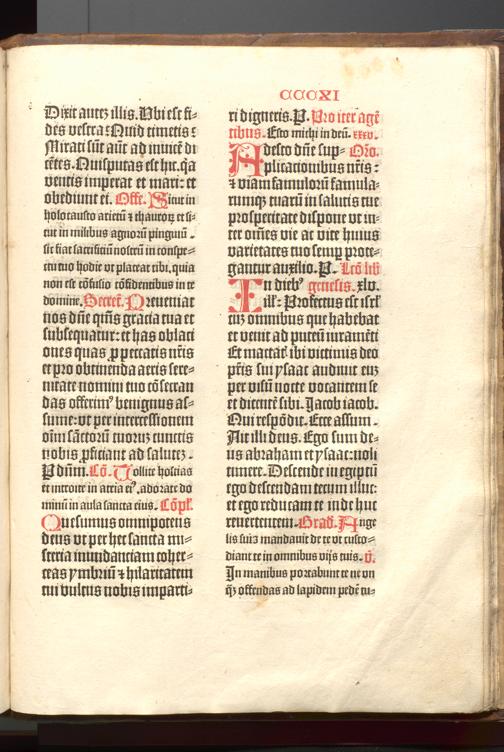 CCCXI
Dixit autez illis. Vbi est fi-
des vestra? Quid timetis?
Mirati sūt aūt ad inuicē di
cētes. Quis putas est hic. qa
ventis imperat et mari: et
obediunt ei. Offe. Sicut in
holocausto arietū ⁊ thauroꝝ et si-
cut in milibus agnorū pinguiū.
sic fiat sacrificiū nostrū in conspe-
ctu tuo hodie vt placeat tibi. quia
non est cōfusio cōfidentibus in te
domine. Secret. Preueniat
nos dn̄e qn̄s gracia tua et
subsequatur: et has oblati
ones quas ꝓ peccatis nr̄is
et pro obtinenda aeris sere-
nitate nomini tuo cōsecran
das offerimꝰ benignus as-
sume: vt per intercessionem
oīm sāctorū tuorum cunctis
nobis ꝓficiant ad salutez.
P dn̄m. Cō. Tollite hostias
et introite in atria eiꝰ. adorate do
minū in aula sancta eius. Cōpl.
Quesumus omnipotens
deus vt per hec sancta mi-
steria inundanciam coher-
ceas ymbriū ⁊ hilaritatem
tui vultus nobis imparti-
ri digneris. P. Pro iter agē
tibus. Esto michi in deū. xxxv.
Adesto dn̄e sup- Oro.
plicationibus nr̄is:
⁊ viam famulorū famula-
rumqꝫ tuarū in salutis tue
prosperitate dispone vt in-
ter om̄es vie ac vite huius
varietates tuo semp prote-
gantur auxilio. P. Lcō libri
In diebꝰ genesis. xlv.
ill': Profectus est isrl'
cuz omnibus que habebat
et venit ad puteū iuramēti
Et mactat ibi victimis deo
pr̄is sui ysaac audiuit euz
per visū nocte vocantem se
et dicentē sibi. Iacob iacob.
Qui respōdit. Ecce assum.
Ait illi deus. Ego sum de-
us abraham et ysaac: noli
timere. Descende in egiptū
ego descendam tecum illuc:
et ego reducam te inde huc
reuertentem. Grad. Ange
lis suis mandauit de te vt custo-
diant te in omnibus vijs tuis. V.
In manibus portabunt te ne vn
qꝫ offendas ad lapidem pedē tu-